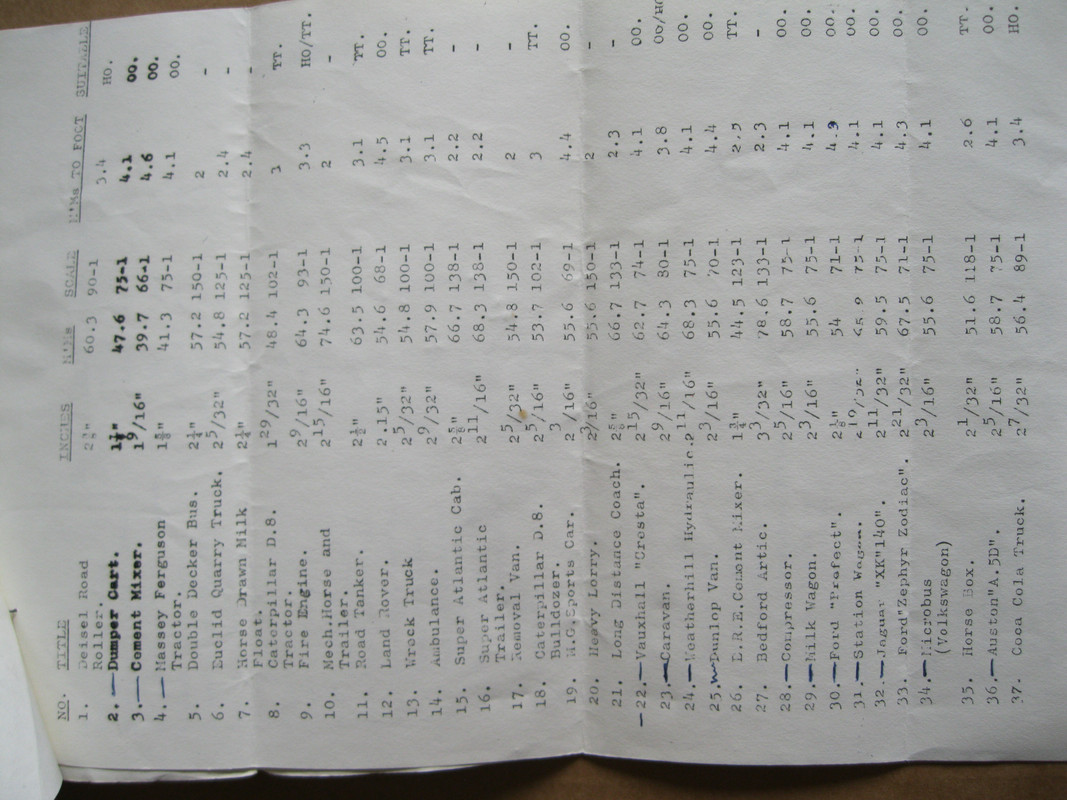 NO. TITLE INCHES M'Ms SCALE M'Ms TO FOOT SUITABLE
1. Deisel Road 2⅜" 60.3 90-1 3.4 HO.
Roller.
2. Dumper Cart. 47.6 75-1 4.1 OO.
3. Coment Mixer. 1 9/16" 39.7 66-1 4.6 OO.
4. Massey Ferguson 1⅝" 41.3 75-1 4.1 OO.
Tractor.
5. Double Decker Bus. 2¼" 57.2 150-1 2 -
6. Euclid Quarry Truck. 2 5/32" 54.8 125-1 2.4 -
7. Horse Drawn Milk 2¼" 57.2 125-1 2.4 -
Float.
8. Caterpillar D.8. 1 29/32" 48.4 102-1 3 TT.
Tractor.
9. Fire Engine. 2 9/16" 64.3 93-1 3.3 HO/TT.
10. Mech.Horse and 2 15/16" 74.6 150-1 2 -
Trailer.
11. Road Tanker. 2½" 63.5 100-1 3.1 TT.
12. Land Rover. 2.15" 54.6 68-1 4.5 OO.
13. Wreck Truck 2 5/32" 54.8 100-1 3.1 TT.
14. Ambulance. 2 9/32" 57.9 100-1 3.1 TT.
15. Super Atlantic Cab. 2⅝" 66.7 138-1 2.2 -
16. Super Atlantic 2 11/16" 68.3 138-1 2.2 -
Trailer.
17. Removal Van. 2 5/32" 54.8 150-1 2 -
18. Caterpillar D.8. 2 5/16" 53.7 102-1 3 TT.
Bulldozer.
19. M.G.Sports Car. 2 3/16" 55.6 69-1 4.4 OO.
20. Heavy Lorry. 2 3/16" 55.6 150-1 2 -
21. Long Distance Coach. 2⅝" 66.7 133-1 2.3 -
22. Vauxhall "Cresta". 2 15/32" 62.7 74-1 4.1 OO.
23. Caravan. 2 9/16" 64.3 80-1 3.8 OO/HO
24. Weatherhill Hydraulic. 2 11/16" 68.3 75-1 4.1 OO.
25. Dunlop Van. 2 3/16" 55.6 70-1 4.4 OO.
26. E.R.E.Coment Mixer. 1¾" 44.5 123-1 2.5 TT.
27. Bedford Artic. 3 3/32" 78.6 133-1 2.3 -
28. Compressor. 2 5/16" 58.7 75-1 4.1 OO.
29. Milk Wagon. 2 3/16" 55.6 75-1 4.1 OO.
30. Ford "Prefect". 2⅛" 54 71-1 4.3 OO.
31. Station Wagon. 75-1 4.1 OO.
32. Jaguar "XK"140". 2 11/32" 59.5 75-1 4.1 OO.
33. Ford"Zephyr Zodiac". 2 21/32" 67.5 71-1 4.3 OO.
34. Microbus 2 3/16" 55.6 75-1 4.1 OO.
(Volkswagon)
35. Horse Box. 2 1/32" 51.6 118-1 2.6 TT.
36. Auston"A.5D". 2 5/16" 58.7 75-1 4.1 OO.
37. Coca Cola Truck. 2 7/32" 56.4 89-1 3.4 HO.